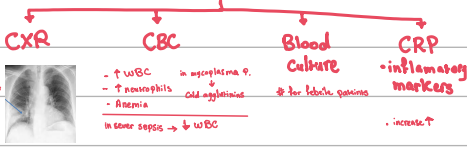 CXR
CBC
- ↑ WBC
- ↑ neutrophils
- Anemia
in mycoplasma p.
↓
Cold agglutinins
In sever sepsis → ↓ WBC
Blood
Culture
# for febrile patients
CRP
• inflamatory
markers
• increase ↑